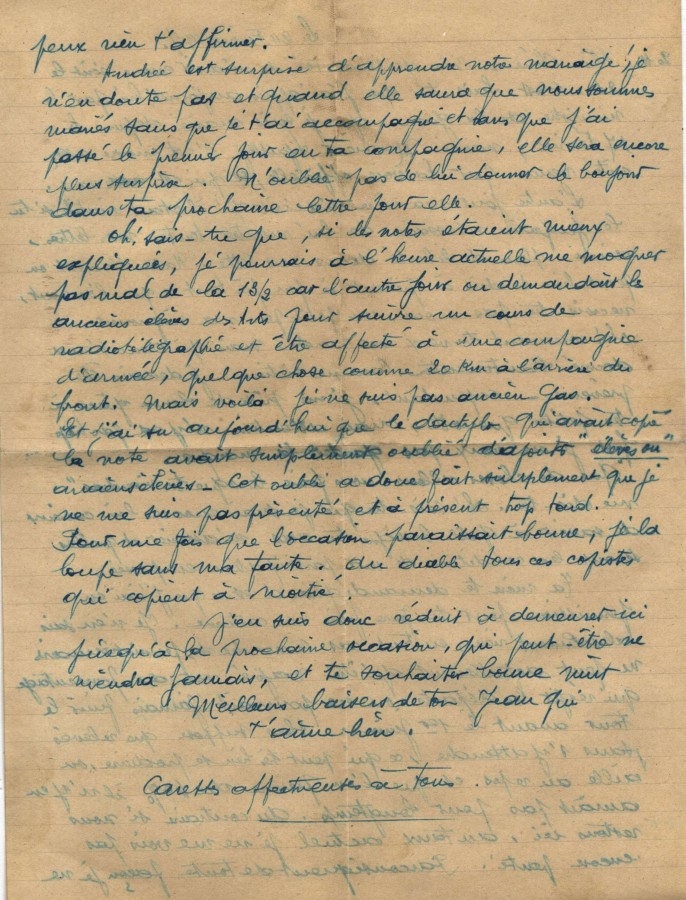 peux rien t'affirmer.
Andrée est surprise d'apprendre notre mariage ! je
n'en doute pas et quand elle saura que nous sommes
mariés sans que je t'ai accompagné et sans que j'ai
passé le premier jour en ta compagnie, elle sera encore
plus surprise. N'oublie pas de lui donner le bonjour
dans ta prochaine lettre pour elle.
Oh! sais-tu que, si les notes étaient mieux
expliquées, je pourrais à l'heure actuelle me moquer
pas mal de la 13/2 car l'autre jour on demandait les
anciens élèves des Arts pour suivre un cours de
radiotélégraphie et être affecté à une compagnie
d'armée, quelque chose comme 20 Km à l'arrière du
front. Mais voilà je ne suis pas ancien Gas
Et j'ai su aujourd'hui que le dactylo qui avait copié
la note avait simplement oublié d'ajouter "élèves ou"
anciens élèves - Cet oubli a donc fait simplement que je
ne me suis pas présenté et à présent trop tard.
Pour une fois que l'occasion paraissait bonne, je la
loupe sans ma faute. Au diable tous ces copistes
qui copient à moitié.
J'en suis donc réduit à demeurer ici
jusqu'à la prochaine occasion, qui peut-être ne
viendra jamais, et te souhaiter bonne nuit
Meilleurs baisers de ton Jean qui
t'aime bien.
Caresses affectueuses à Tous.